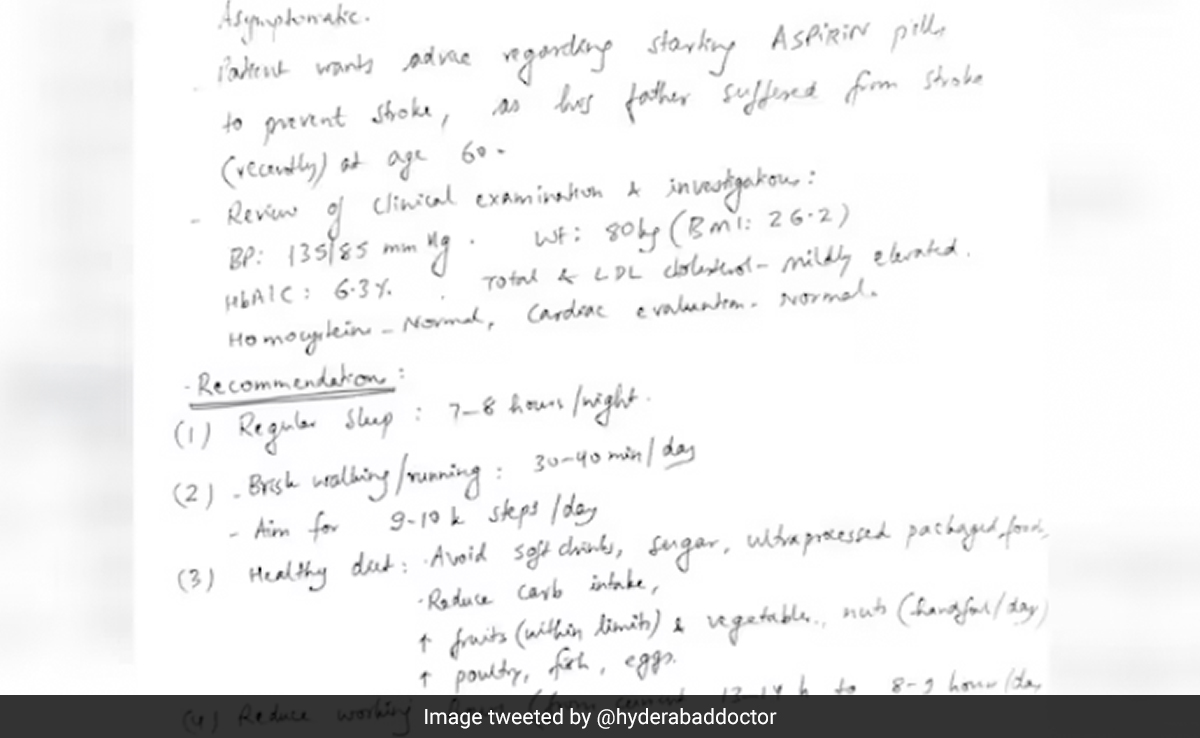 Asymptomatic.
- Patient wants advice regarding starting ASPIRIN pills
to prevent stroke, as his father suffered from stroke
(recently) at age 60.
- Review of clinical examination & investigations:
BP: 135/85 mm Hg. Wt: 80kg (BMI: 26.2)
HbA1C: 6.3%. Total & LDL cholesterol - mildly elevated.
Homocysteine - Normal, Cardiac evaluation - Normal.
- Recommendations:
(1) Regular sleep: 7-8 hours/night.
(2) - Brisk walking/running: 30-40 min/day
- Aim for 9-10k steps/day
(3) Healthy diet: - Avoid soft drinks, sugar, ultraprocessed packaged foods,
- Reduce carb intake,
↑ fruits (within limits) & vegetables, nuts (handful/day)
↑ poultry, fish, eggs.
(4) Reduce working hours (from current 13-14 h to 8-9 hours/day
Image tweeted by @hyderabaddoctor